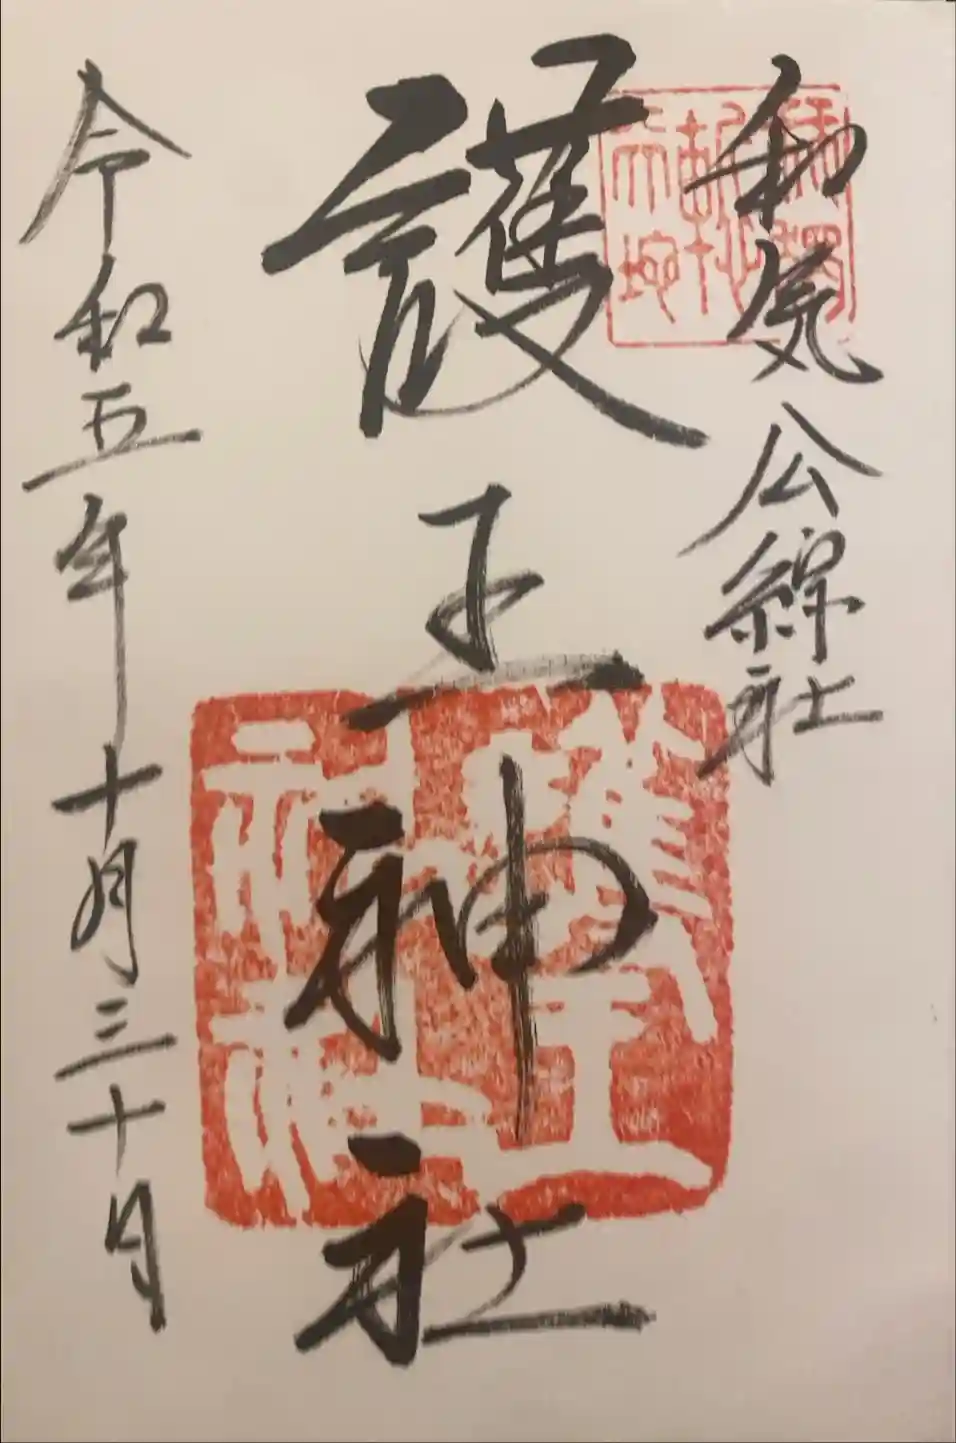 和気公綜社
護王神社
令和五年十月三十日
護王
神社